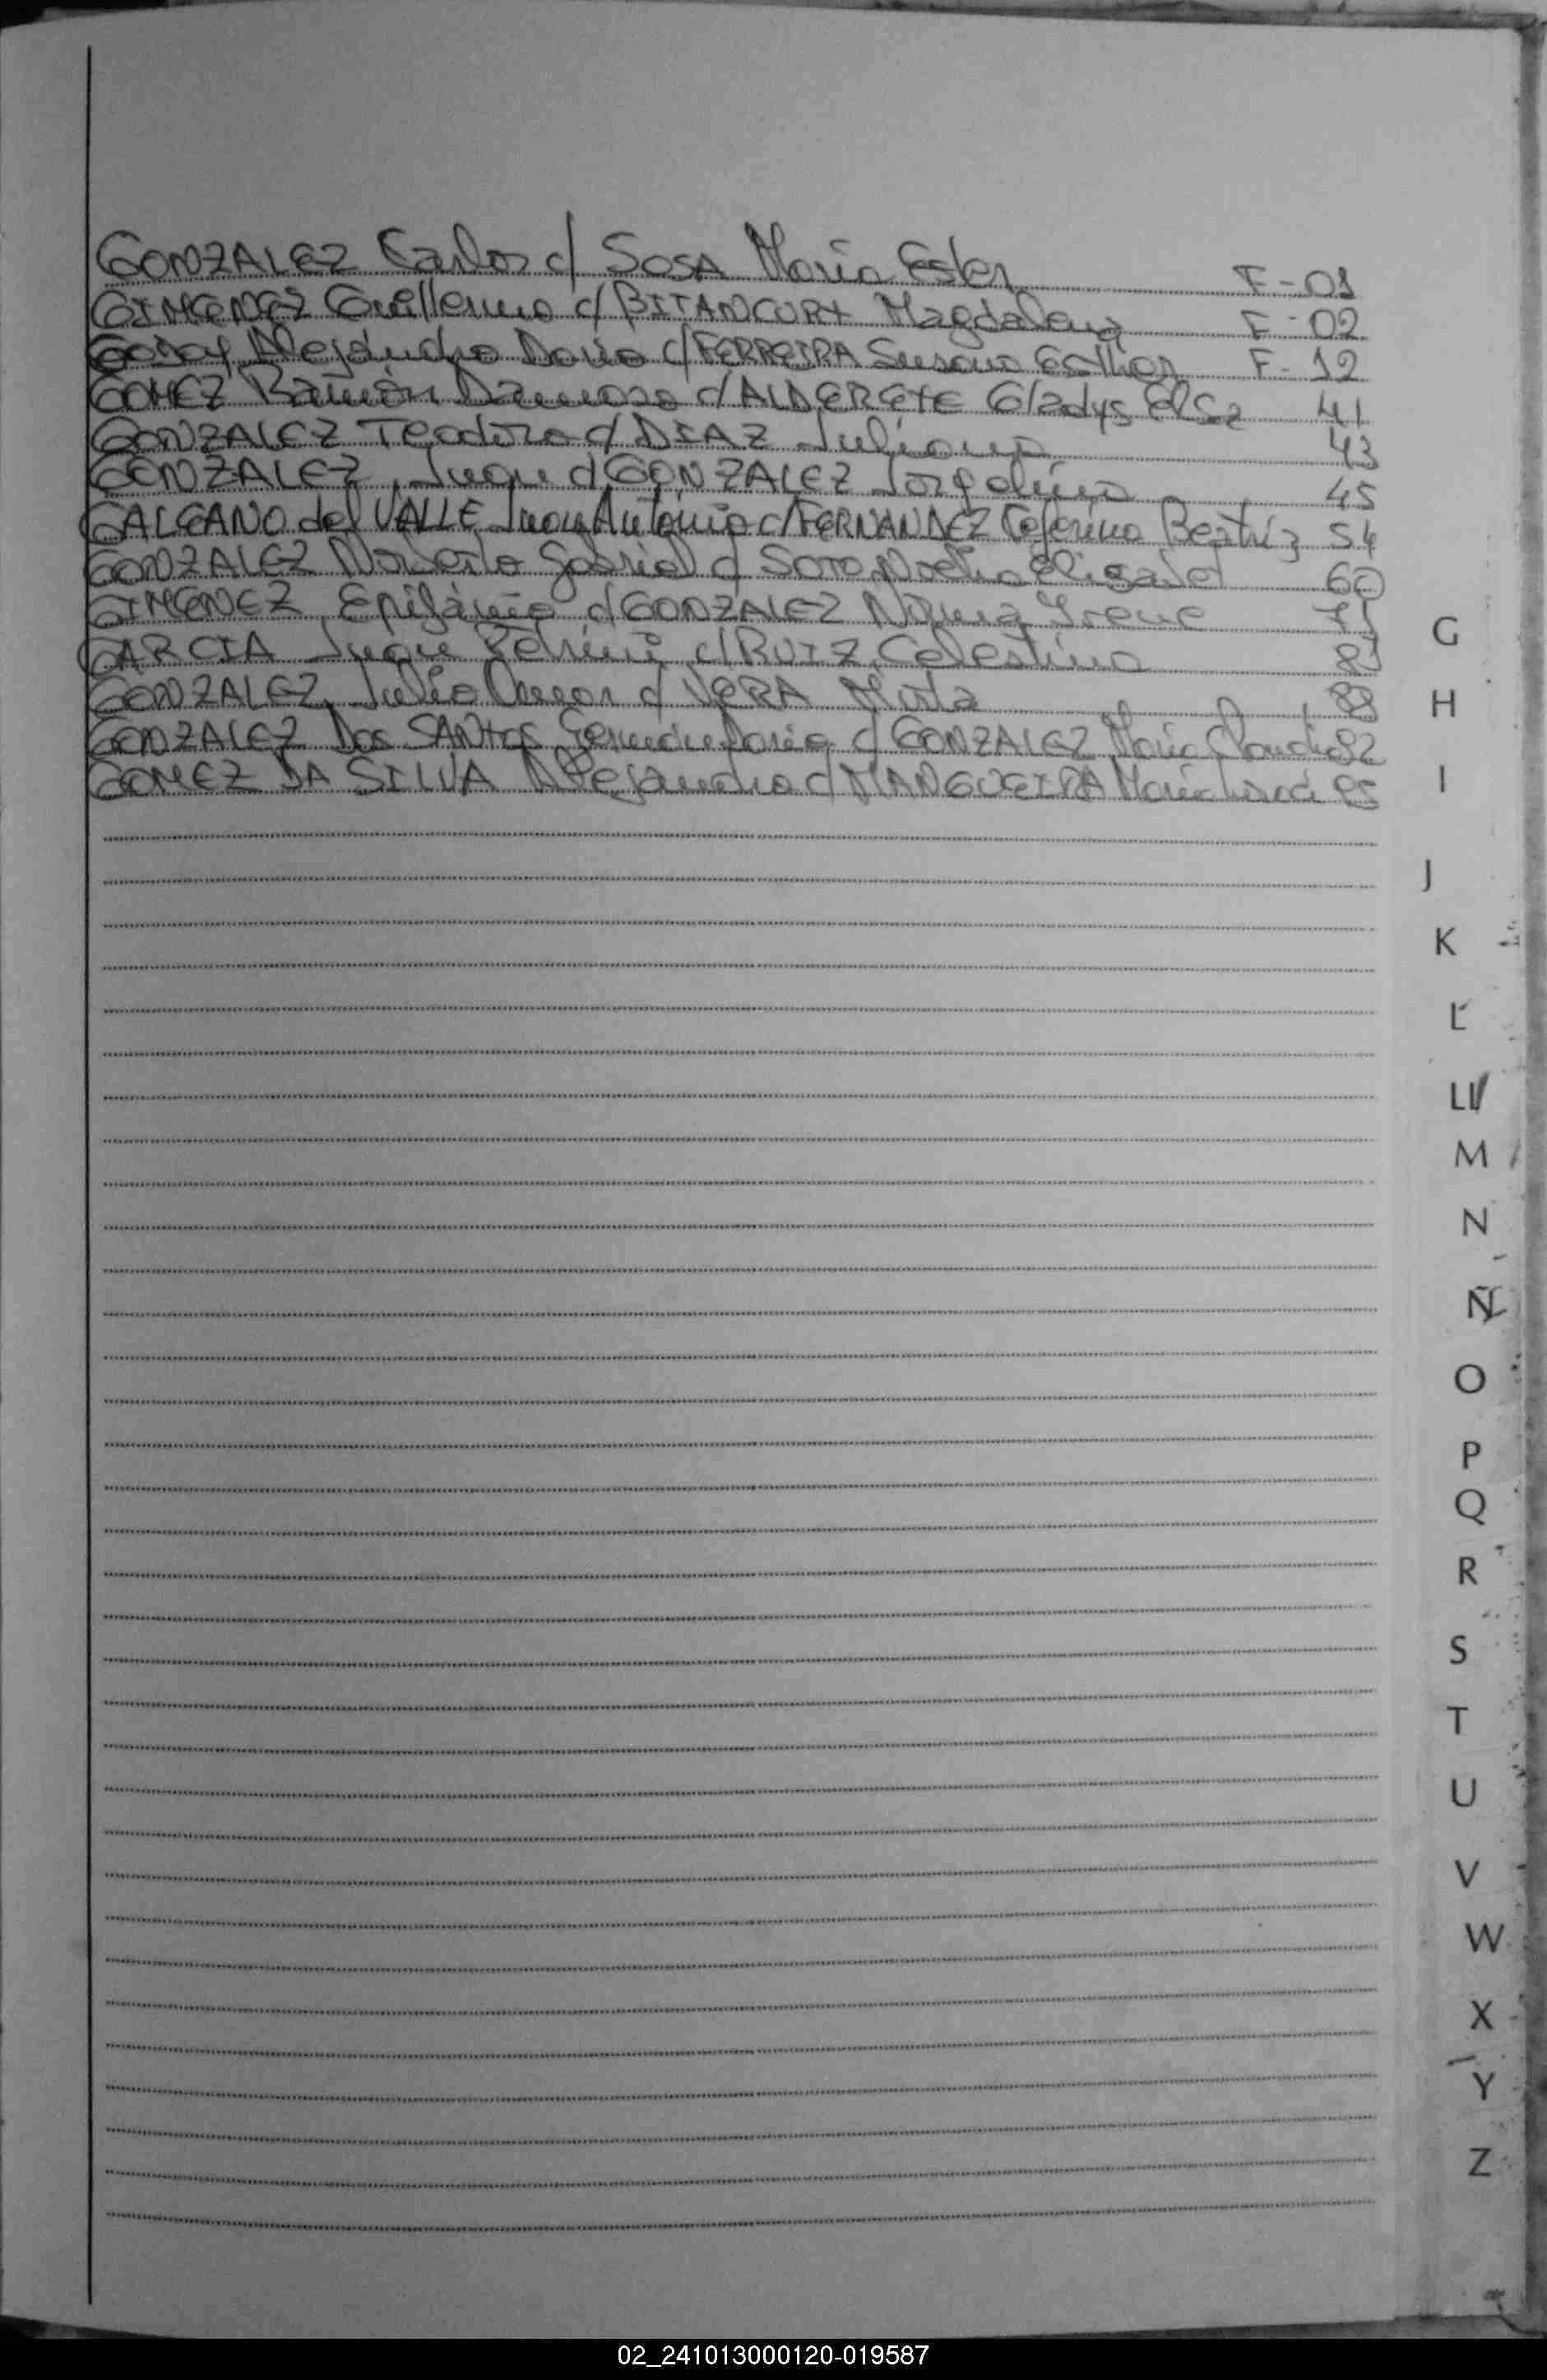 GONZALEZ Carlos c/ SOSA María Ester F-01
GIMENEZ Guillermo c/ BITANCURT Magdalena F-02
GODOY Alejandro Dario c/ FERREIRA Susana Esther F-12
GOMEZ Ramón Damaso c/ ALDERETE Gladys Elsa 41
GONZALEZ Teodoro c/ DIAZ Juliana 43
GONZALEZ, Juan c/ GONZALEZ Jorgelina 45
GALEANO del VALLE Juan Antonio c/ FERNANDEZ Ceferina Beatriz 54
GONZALEZ Norberto Gabriel c/ SOTO Noelia Elizabet 60
GIMENEZ Epifanio c/ GONZALEZ Norma Irene 71
GARCIA Juan c/ RUIZ, Celestina
GONZALEZ, Julio c/ VERA Mirta
GONZALEZ Dos SANTOS c/ GONZALEZ María Claudia
GOMEZ DA SILVA Alejandro c/ MANGUEIRA María
G
H
I
J
K
L
LL
M
N
Ñ
O
P
Q
R
S
T
U
V
W
X
Y
Z
02_241013000120-019587